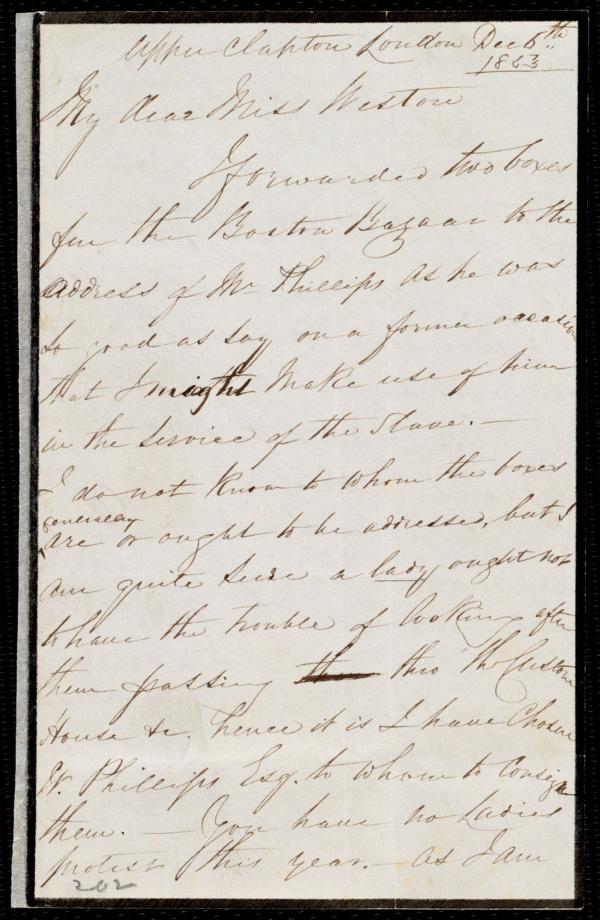 Upper Clapton London Dec 6th
1853
My dear Miss Weston
I forwarded two boxes
for the Boston Bazaar to the
address of Mr Phillips as he was
so good as say on a former occasion
that I might make use of him
in the service of the Slave. —
I do not know to whom the boxes
generally
are or ought to be addressed, but I
am quite sure a lady ought not
to have the trouble of looking after
them passing thro' the Custom
House &c. hence it is I have chosen
W. Phillips Esq. to whom to consign
them. — You have no Ladies
protest this year. — as I am
202